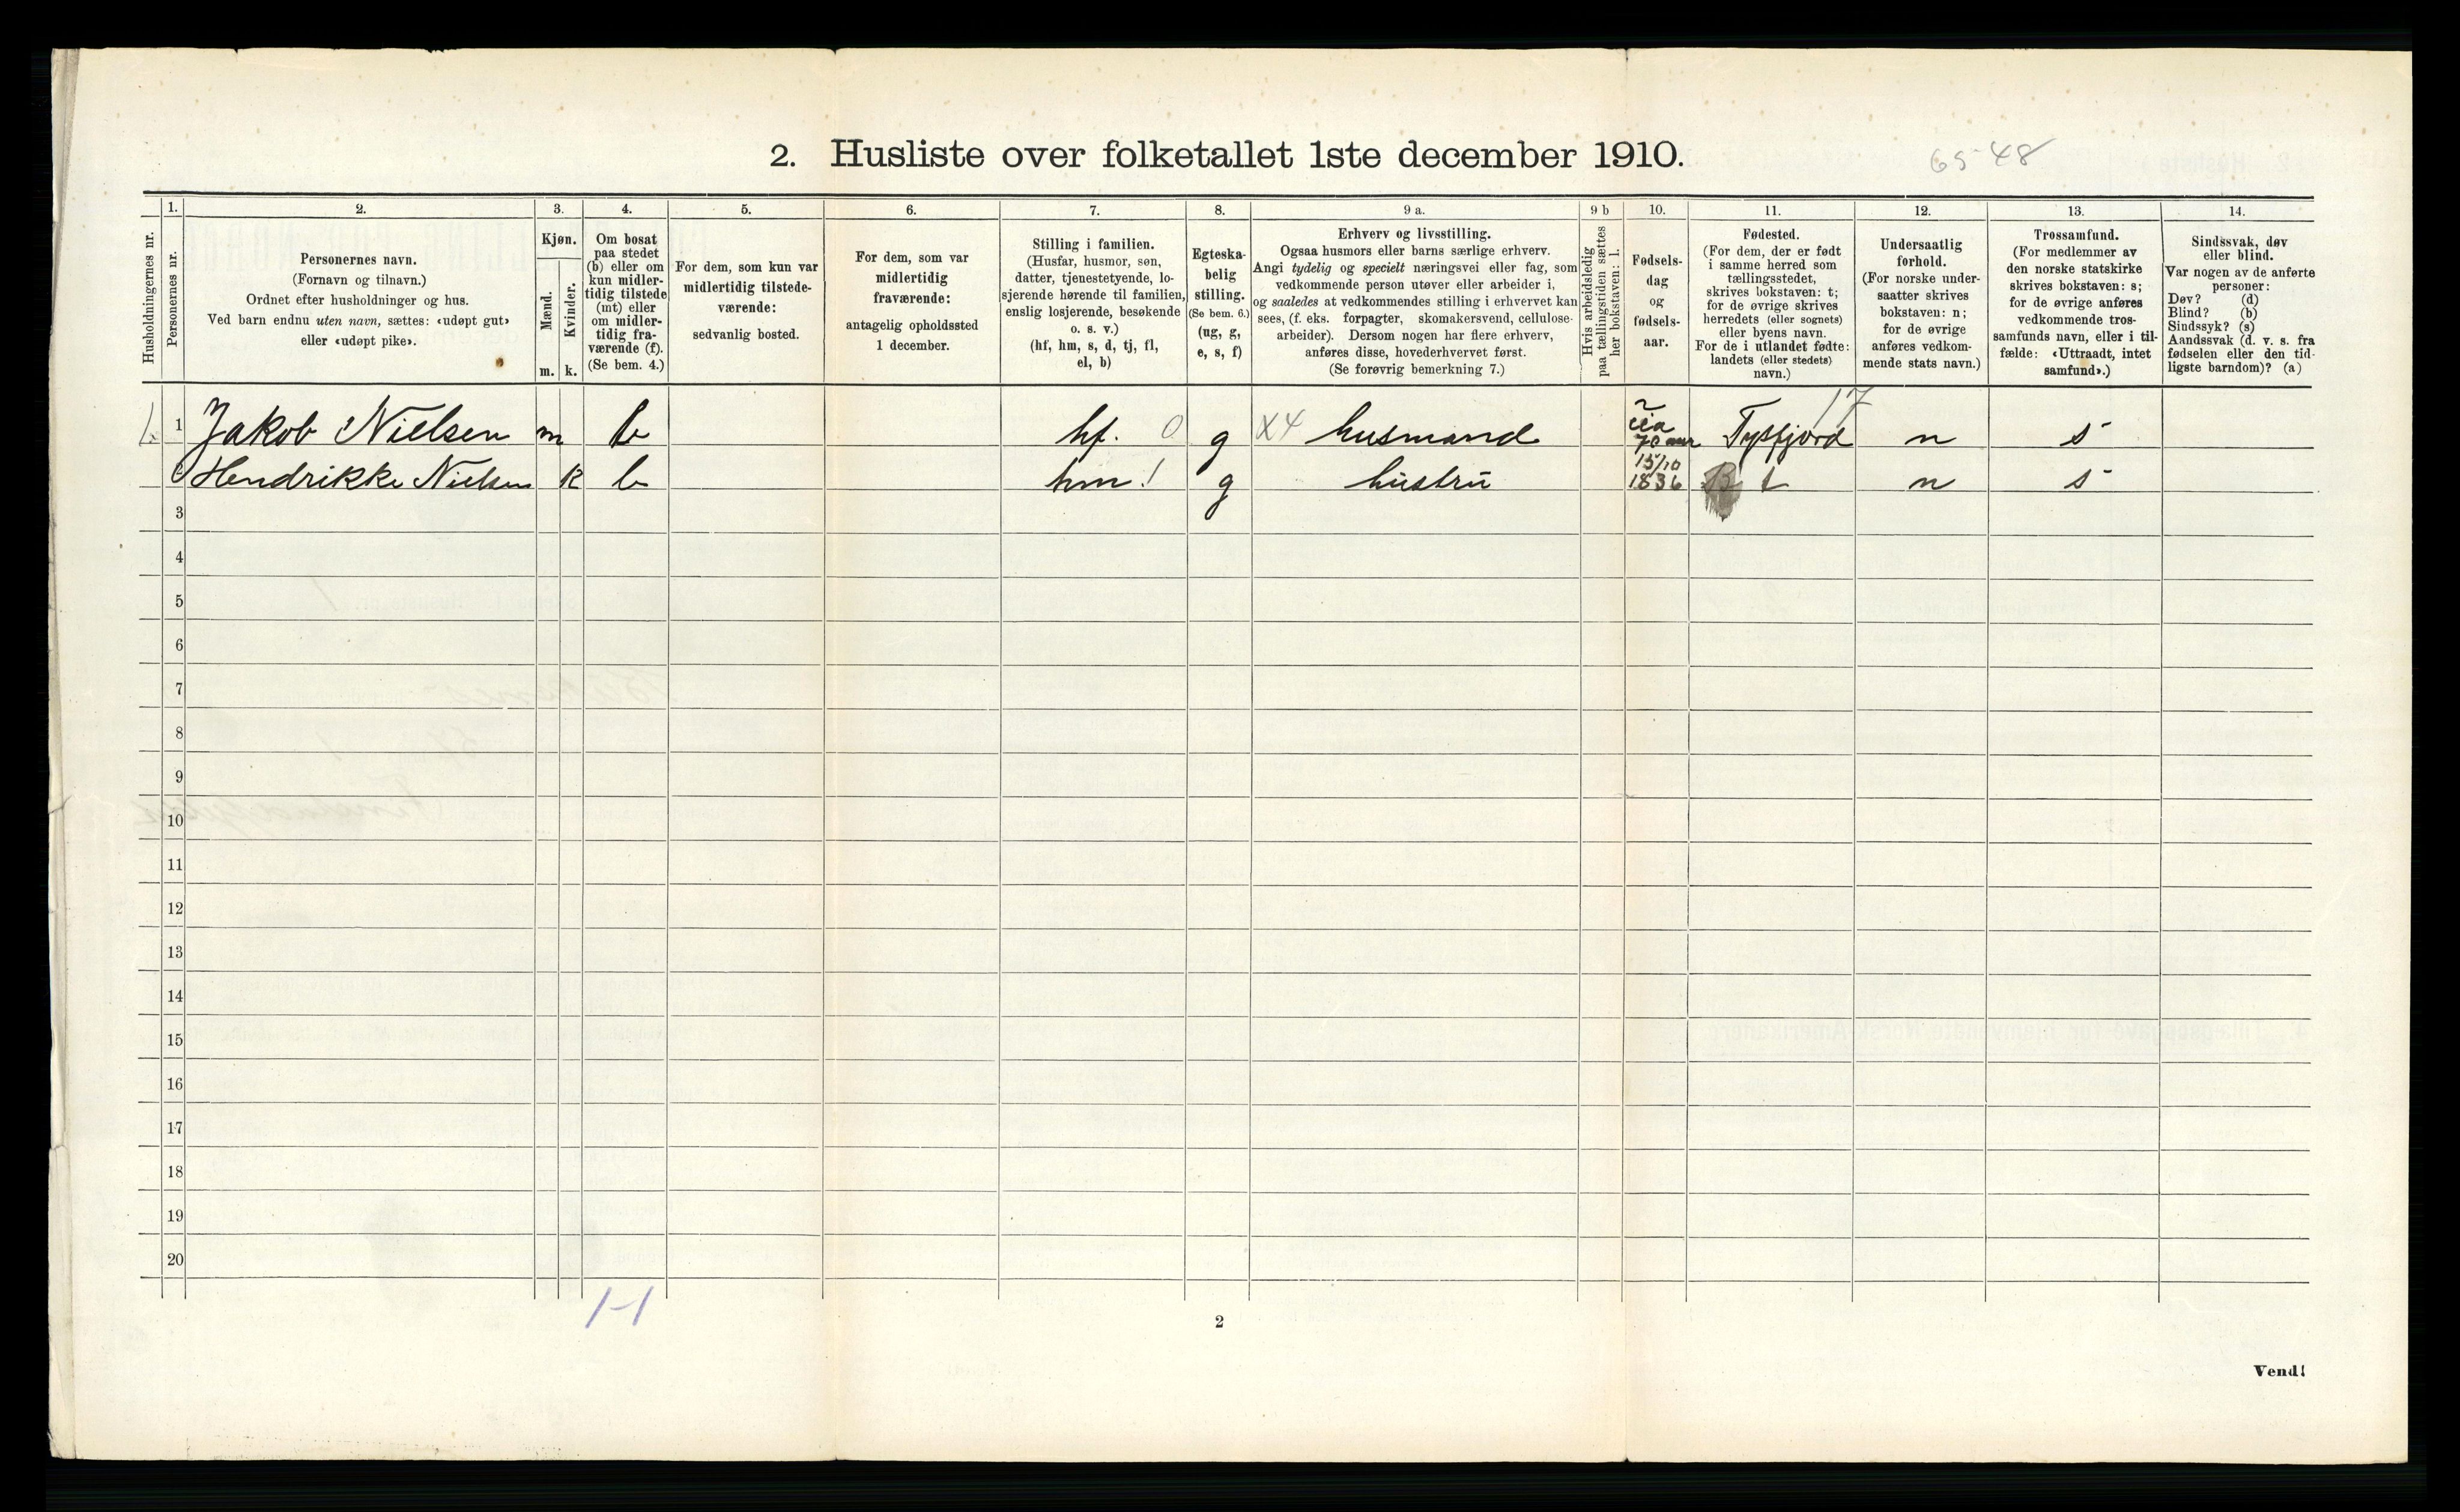 2. Husliste over folketallet 1ste december 1910.
65-48
Husholdningernes nr.
1.
Personernes nr.
2.
Personernes navn.
(Fornavn og tilnavn.)
Ordnet efter husholdninger og hus.
Ved barn endnu uten navn, sættes: «udøpt gut»
eller «udøpt pike».
3.
Kjøn.
Mænd.
Kvinder.
m. k.
4.
Om bosat
paa stedet
(b) eller om
kun midler-
tidig tilstede
(mt) eller
om midler-
tidig fra-
værende (f).
(Se bem. 4.)
5.
For dem, som kun var
midlertidig tilstede-
værende:
sedvanlig bosted.
6.
For dem, som var
midlertidig
fraværende:
antagelig opholdssted
1 december.
7.
Stilling i familien.
(Husfar, husmor, søn,
datter, tjenestetyende, lo-
sjerende hørende til familien,
enslig losjerende, besøkende
o. s. v.)
(hf, hm, s, d, tj, fl,
el, b)
8.
Egteska-
belig
stilling.
(Se bem. 6.)
(ug, g,
e, s, f)
9 a.
Erhverv og livsstilling.
Ogsaa husmors eller barns særlige erhverv.
Angi tydelig og specielt næringsvei eller fag, som
vedkommende person utøver eller arbeider i,
og saaledes at vedkommendes stilling i erhvervet kan
sees, (f. eks. forpagter, skomakersvend, cellulose-
arbeider). Dersom nogen har flere erhverv,
anføres disse, hovederhvervet først.
(Se forøvrig bemerkning 7.)
9 b
Hvis arbeidsledig
paa tællingstiden sættes
her bokstaven: l.
10.
Fødsels-
dag
og
fødsels-
aar.
11.
Fødested.
(For dem, der er født
i samme herred som
tællingsstedet,
skrives bokstaven: t;
for de øvrige skrives
herredets (eller sognets)
eller byens navn.
For de i utlandet fødte:
landets (eller stedets)
navn.)
12.
Undersaatlig
forhold.
(For norske under-
saatter skrives
bokstaven: n;
for de øvrige
anføres vedkom-
mende stats navn.)
13.
Trossamfund.
(For medlemmer av
den norske statskirke
skrives bokstaven: s;
for de øvrige anføres
vedkommende tros-
samfunds navn, eller i til-
fælde: «Uttraadt, intet
samfund».)
14.
Sindssvak, døv
eller blind.
Var nogen av de anførte
personer:
Døv? (d)
Blind? (b)
Sindssyk? (s)
Aandssvak (d. v. s. fra
fødselen eller den tid-
ligste barndom)? (a)
1 Jakob Nielsen m b hf. 0 g X4 husmand cia 70 aar Tysfjord 17 n s
Hendrikke Nielsen k b hm ! g hustru 15/10 1836 t n s
3
4
5
6
7
8
9
10
11
12
13
14
15
16
17
18
19
20
1-1
2
Vend!